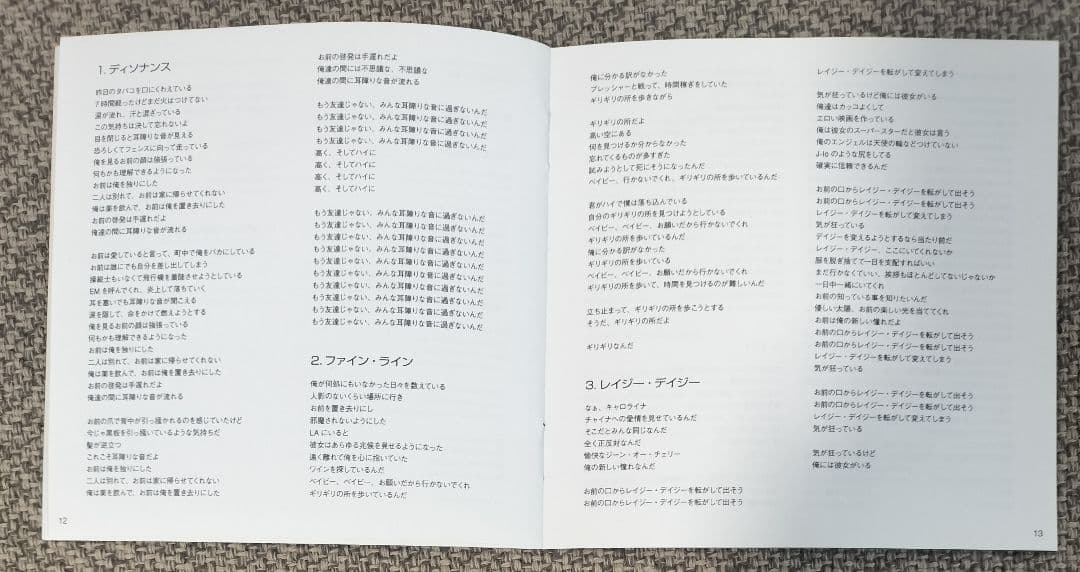 1. ディソナンス
昨日のタバコを口にくわえている
7時間経ったけどまだ火はつけてない
涙が流れ、汗と混ざっている
この気持ちは決して忘れないよ
目を閉じると耳障りな音が見える
恐ろしくてフェンスに向って走っている
俺を見るお前の顔は強張っている
何もかも理解できるようになった
お前は俺を独りにした
二人は別れて、お前は家に帰らせてくれない
俺は薬を飲んで、お前は俺を置き去りにした
お前の啓発は手遅れだよ
俺達の間に耳障りな音が流れる
お前は愛していると言って、町中で俺をバカにしている
お前は誰にでも自分を差し出してしまう
操縦士もいなくて飛行機を着陸させようとしている
EMを呼んでくれ、炎上して落ちていく
耳を塞いでも耳障りな音が聞こえる
涙を隠して、命をかけて燃えようとする
俺を見るお前の顔は強張っている
何もかも理解できるようになった
お前は俺を独りにした
二人は別れて、お前は家に帰らせてくれない
俺は薬を飲んで、お前は俺を置き去りにした
お前の啓発は手遅れだよ
俺達の間に耳障りな音が流れる
お前の爪で背中が引っ掻かれるのを感じていたけど
今じゃ黒板を引っ掻いているような気持ちだ
髪が逆立つ
これこそ耳障りな音だよ
お前は俺を独りにした
二人は別れて、お前は家に帰らせてくれない
俺は薬を飲んで、お前は俺を置き去りにした
12
お前の啓発は手遅れだよ
俺達の間には不思議な、不思議な
俺達の間に耳障りな音が流れる
もう友達じゃない、みんな耳障りな音に過ぎないんだ
もう友達じゃない、みんな耳障りな音に過ぎないんだ
もう友達じゃない、みんな耳障りな音に過ぎないんだ
もう友達じゃない、みんな耳障りな音に過ぎないんだ
高く、そしてハイに
高く、そしてハイに
高く、そしてハイに
高く、そしてハイに
もう友達じゃない、みんな耳障りな音に過ぎないんだ
もう友達じゃない、みんな耳障りな音に過ぎないんだ
もう友達じゃない、みんな耳障りな音に過ぎないんだ
もう友達じゃない、みんな耳障りな音に過ぎないんだ
もう友達じゃない、みんな耳障りな音に過ぎないんだ
もう友達じゃない、みんな耳障りな音に過ぎないんだ
もう友達じゃない、みんな耳障りな音に過ぎないんだ
もう友達じゃない、みんな耳障りな音に過ぎないんだ
もう友達じゃない、みんな耳障りな音に過ぎないんだ
もう友達じゃない、みんな耳障りな音に過ぎないんだ
2. ファイン・ライン
俺が何処にもいなかった日々を数えている
人影のないくらい場所に行き
お前を置き去りにし
邪魔されないようにした
LAにいると
彼女はあらゆる兆候を見せるようになった
遠く離れて俺を心に抱いていた
ワインを探しているんだ
ベイビー、ベイビー、お願いだから行かないでくれ
ギリギリの所を歩いているんだ
俺に分かる訳がなかった
プレッシャーと戦って、時間稼ぎをしていた
ギリギリの所を歩きながら
ギリギリの所だよ
高い空にある
何を見つけるか分からなかった
忘れてくるものが多すぎた
試みようとして死にそうになったんだ
ベイビー、行かないでくれ、ギリギリの所を歩いているんだ
君がハイで僕は落ち込んでいる
自分のギリギリの所を見つけようとしている
ベイビー、ベイビー、お願いだから行かないでくれ
ギリギリの所を歩いているんだ
俺に分かる訳がなかった
ギリギリの所を歩いている
ベイビー、ベイビー、お願いだから行かないでくれ
ギリギリの所を歩いて、時間を見つけるのが難しいんだ
立ち止まって、ギリギリの所を歩こうとする
そうだ、ギリギリの所だよ
ギリギリなんだ
3. レイジー・デイジー
なぁ、キャロライナ
チャイナへの愛情を見せているんだ
そこだとみんな同じなんだ
全く正反対なんだ
愉快なジーン・オー・チェリー
俺の新しい憧れなんだ
お前の口からレイジー・デイジーを転がして出そう
お前の口からレイジー・デイジーを転がして出そう
レイジー・デイジーを転がして変えてしまう
気が狂っているけど俺には彼女がいる
俺達はカッコよくして
エロい映画を作っている
俺は彼女のスーパースターだと彼女は言う
俺のエンジェルは天使の輪などつけていない
J-loのような尻をしてる
確実に信頼できるんだ
お前の口からレイジー・デイジーを転がして出そう
お前の口からレイジー・デイジーを転がして出そう
レイジー・デイジーを転がして変えてしまう
気が狂っている
デイジーを変えるようとするなら当たり前だ
レイジー・デイジー、ここにいてくれないか
服を脱ぎ捨てて一日を支配すればいい
まだ行かなくていい、挨拶もほとんどしてないじゃないか
一日中一緒にいてくれ
お前の知っている事を知りたいんだ
優しい太陽、お前の楽しい光を当ててくれ
お前は俺の新しい憧れだよ
お前の口からレイジー・デイジーを転がして出そう
お前の口からレイジー・デイジーを転がして出そう
レイジー・デイジーを転がして変えてしまう
気が狂っている
お前の口からレイジー・デイジーを転がして出そう
お前の口からレイジー・デイジーを転がして出そう
レイジー・デイジーを転がして変えてしまう
気が狂っている
気が狂っているけど
俺には彼女がいる
13